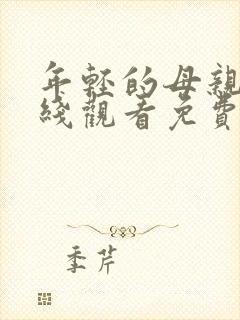 年轻的母親
綫觀看免費
季芹